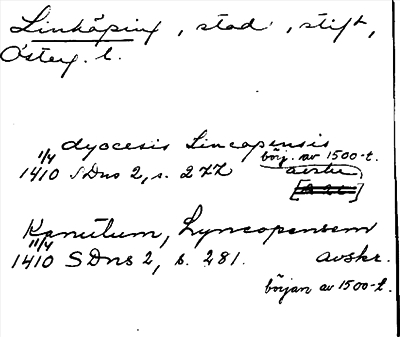 Linköping, stad, stift,
Österg. l.
dyocesis Lincopensis
11/4 börj. av 1500-t.
1410 SDns 2, s. 277 avskr.
Kanutum, Lyncopensem
11/4
1410 SDns 2, s. 281. avskr.
början av 1500-t.